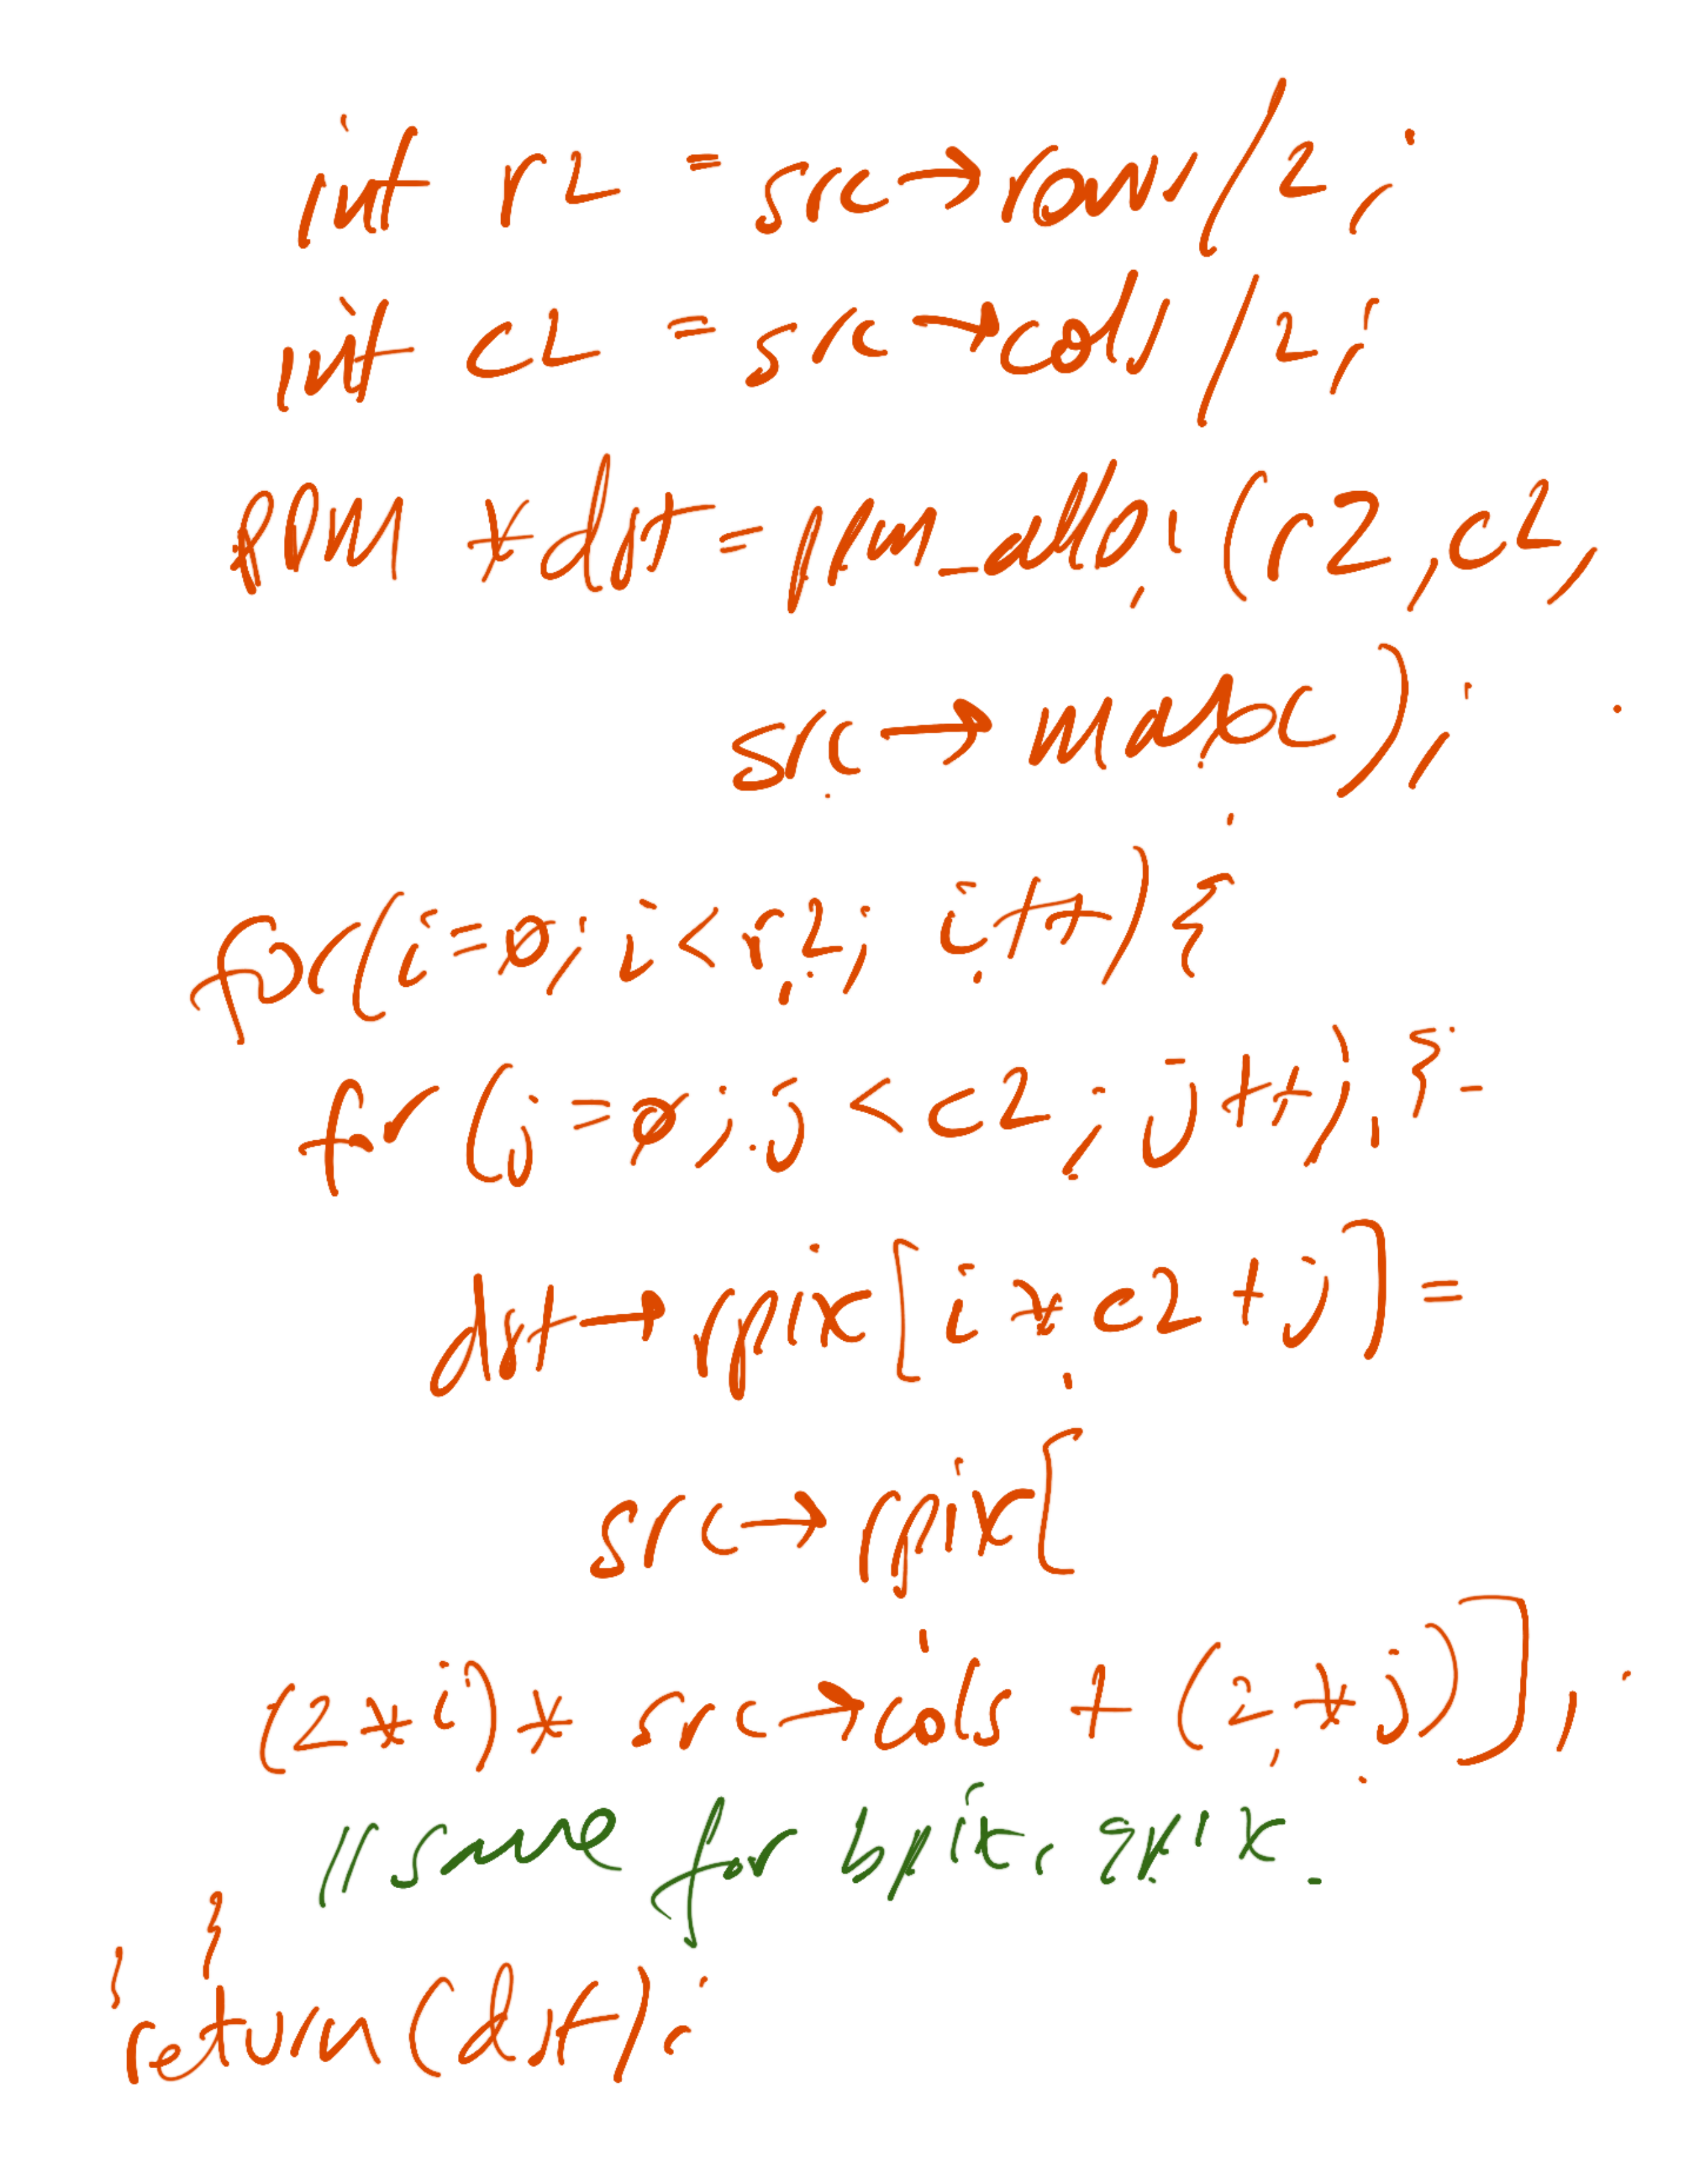 int r2 = src→rows/2;
int c2 = src→cols/2;
PPM *dst = ppm_alloc(r2,c2,
src→ maxbc);
for(i=0; i<r2; i++) {
for (j=0; j<c2; j++) {
dst→rpix[i*c2+j] =
src→rpix[
(2*i)* src→cols + (2*j)];
//same for bpix, gpix.
}
}
return(dst);